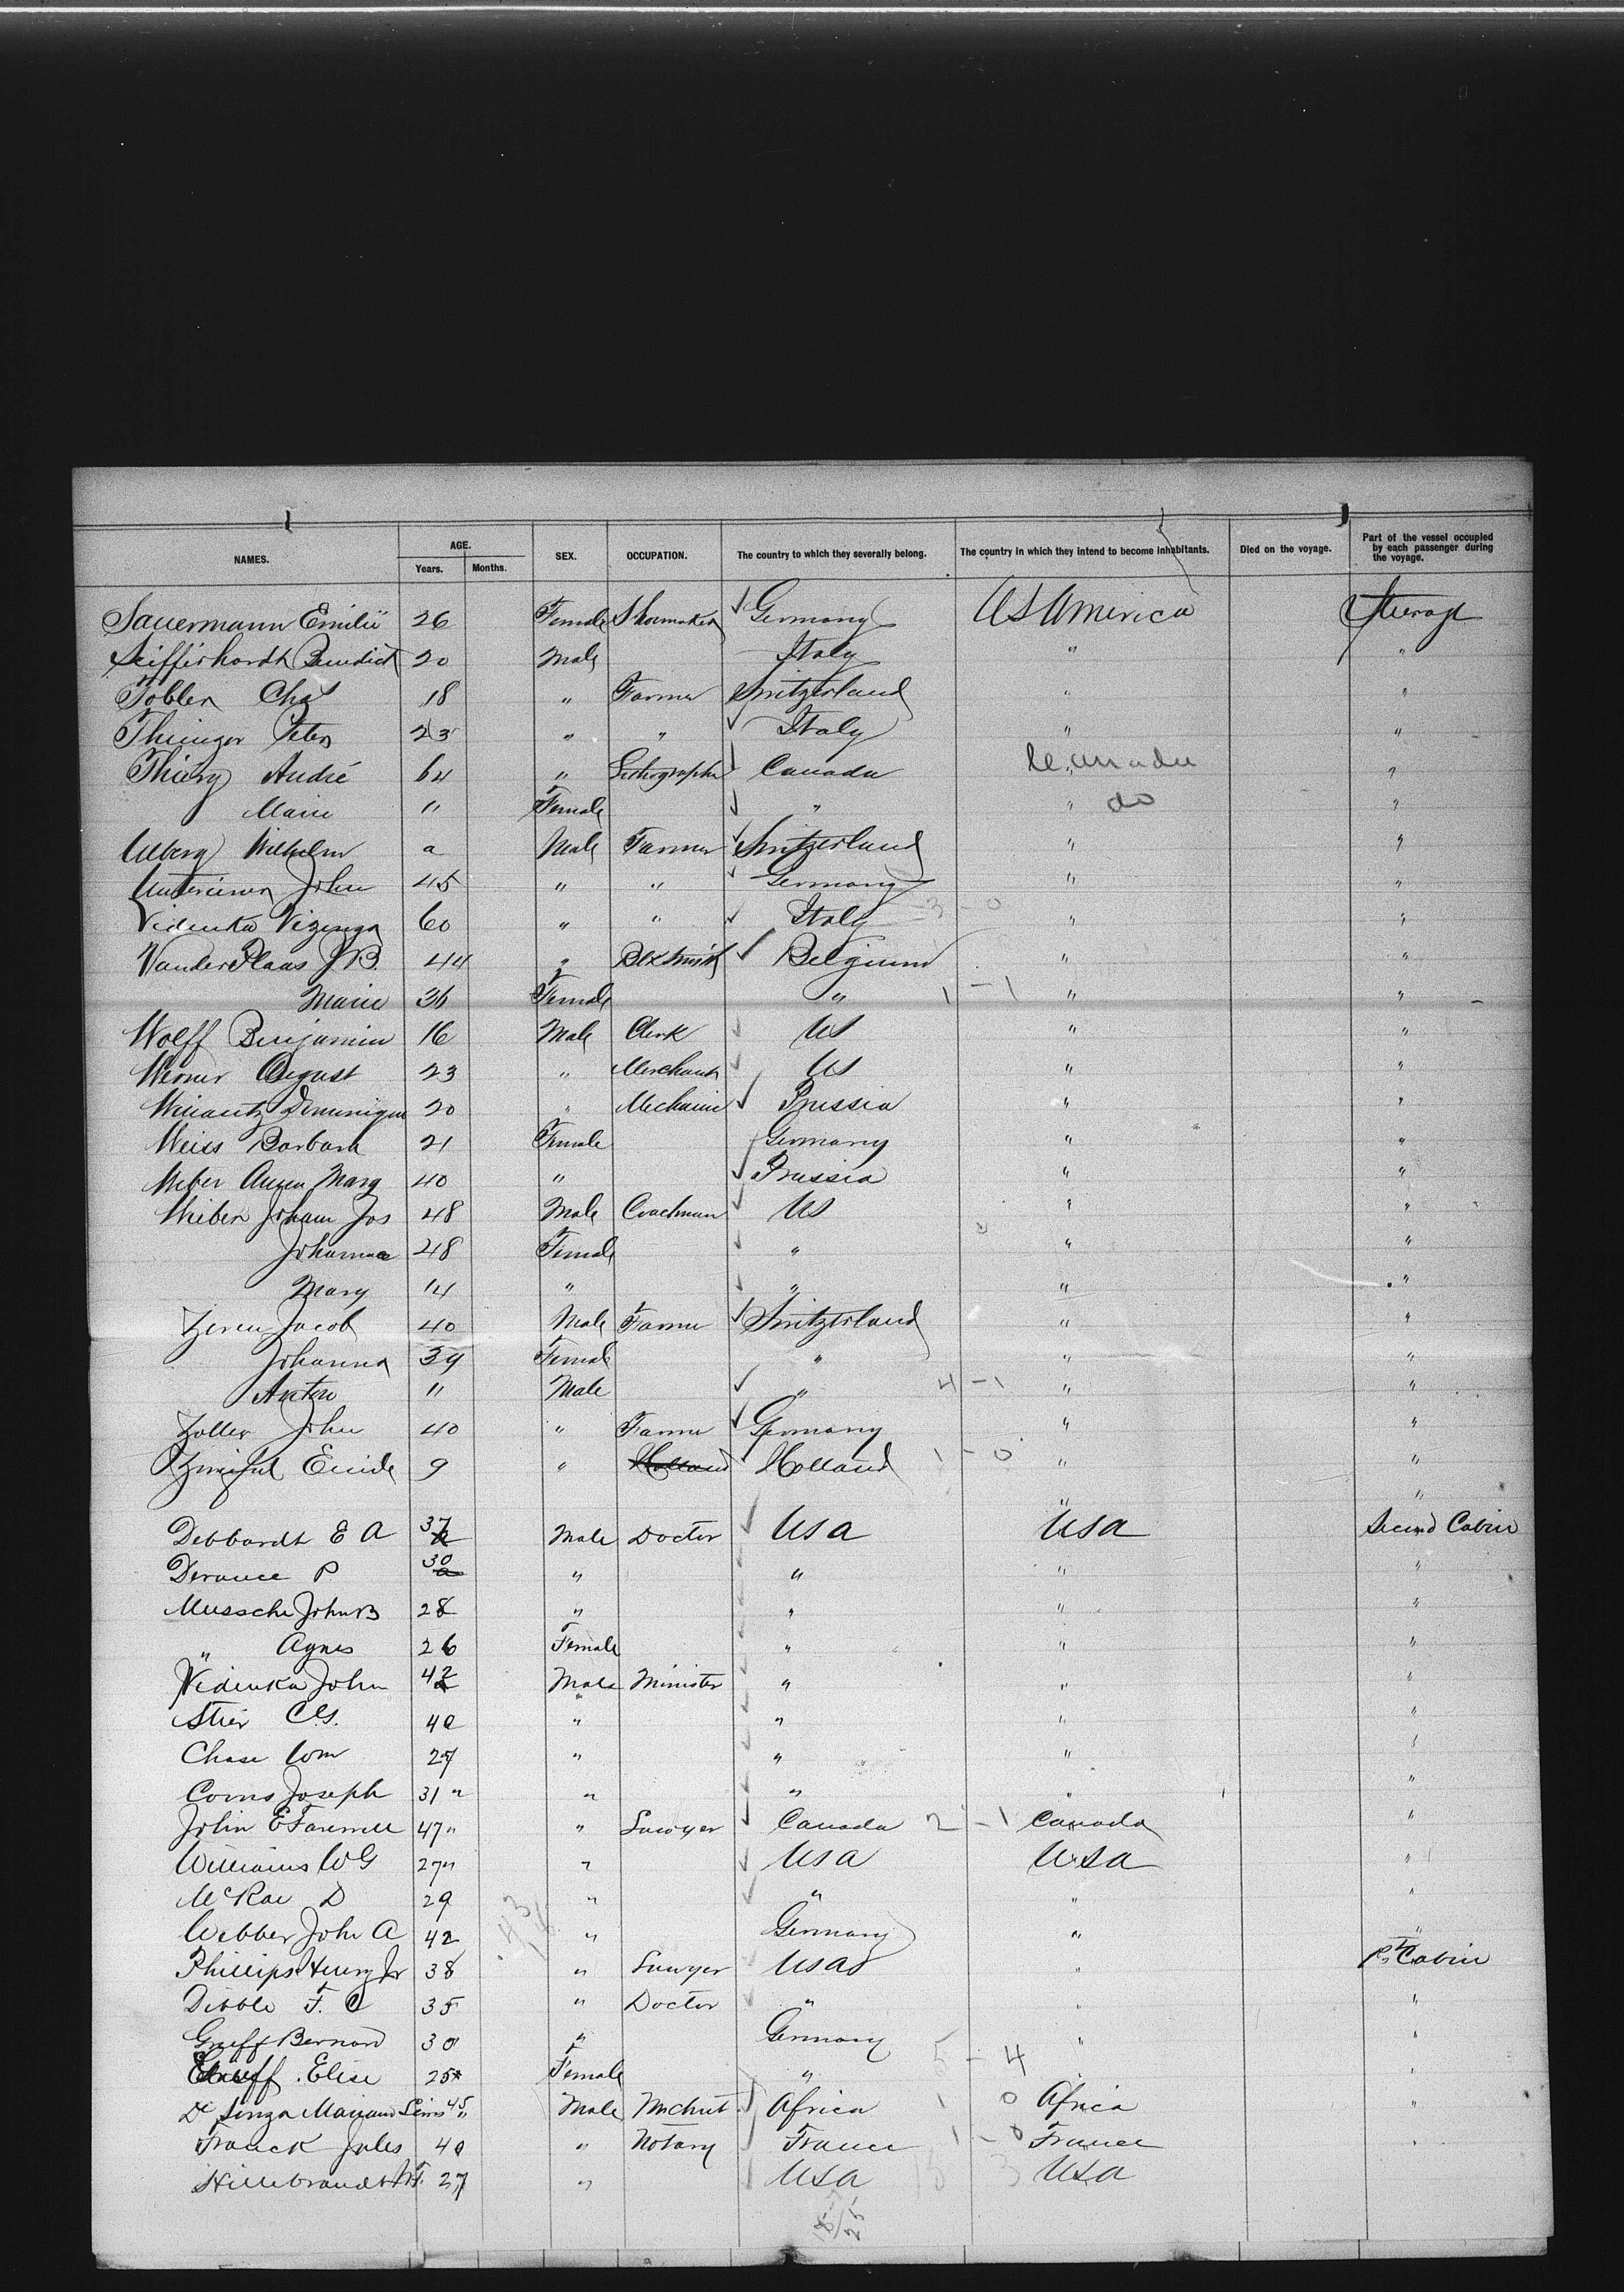 NAMES. AGE. Years. Months. SEX. OCCUPATION. The country to which they severally belong. The country in which they intend to become inhabitants. Died on the voyage. Part of the vessel occupied by each passenger during the voyage.
Sauermann Emilie 26 Female Shoemaker Germany US America Steerage
Benedict 20 Male Italy " "
Tobler Chas 18 " Farmer Switzerland " "
Peter 23 " " Italy " "
Thiery André 64 " Lithographer Canada Canada "
Marie " Female " " do "
Wilhelm a Male Farmer Switzerland " "
John 45 " " Germany " "
60 " " Italy 3 - 0 " "
VanderPlaas J B. 44 " Blksmith Belgium " "
Marie 36 Female " 1 - 1 " "
Wolff Benjamin 16 Male Clerk US " "
Werner August 23 " Merchant US " "
Dominique 20 " Mechanic Prussia " "
Weiss Barbara 21 Female Germany " "
Weber Mary 40 " Prussia " "
Johann Jos 48 Male Coachman US " "
Johanna 48 Female " " "
Mary 14 " " " "
Jacob 40 Male Farmer Switzerland " "
Johanna 39 Female " " "
Anton 11 Male " 4 - 1 " "
Zoller John 40 " Farmer Germany " "
9 " Holland Holland 1 - 0 " "
" "
Debbardt E A 37 Male Doctor USA USA Second Cabin
P 30 " " " "
Mussche John B 28 " " " "
" Agnes 26 Female " " "
Videnka John 42 Male Minister " " "
Stier C.G. 40 " " " "
Chase Wm 27 " " " "
Joseph 31 " " " " "
John E Farewell 47 " " Lawyer Canada 2 - 1 Canada "
Williams W G 27 " " USA USA "
McRae D 29 " " " "
Webber John A 42 " Germany " "
Phillips Henry Jr 38 " Lawyer USA " 1st Cabin
Dibble F. C 35 " Doctor " " "
Greff Bernard 30 " Germany " "
Greff Elise 25 Female " 5 - 4 " "
45 " Male Mrchnt Africa 1 0 Africa "
Franck Jules 40 " Notary France 1 - 0 France "
Hillebrandt 27 " USA 3 USA